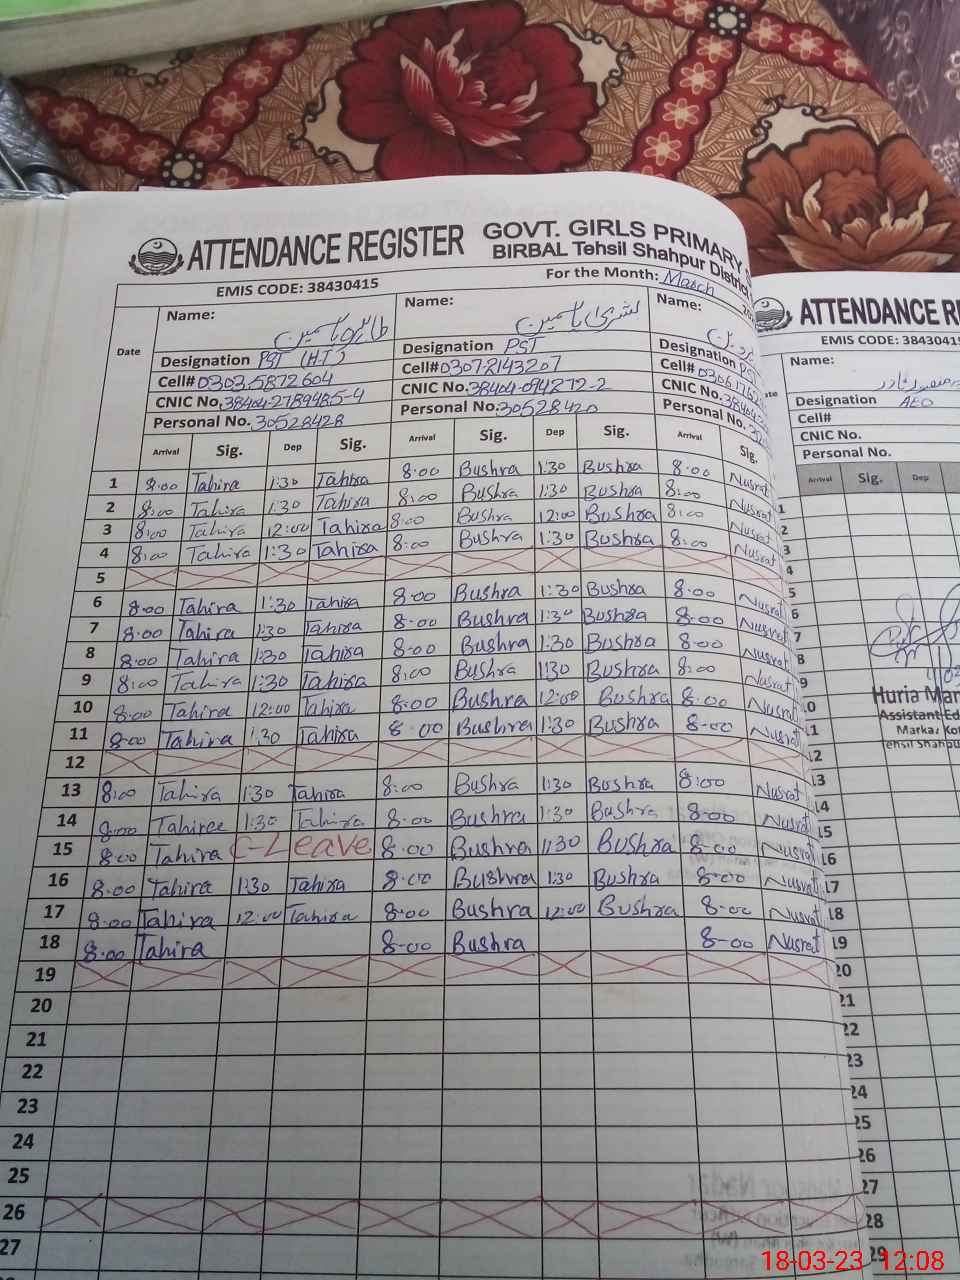 ATTENDANCE REGISTER GOVT. GIRLS PRIMARY
BIRBAL Tehsil Shahpur District
EMIS CODE: 38430415 For the Month: March
Date Name: Name: Name:
Designation PST (H.T) Designation PST Designation PST
Cell# 0303.5872604 Cell# 0307-2143207 Cell#
CNIC No. CNIC No. CNIC No.
Personal No. 30528428 Personal No. 30528420 Personal No.
Arrival Sig. Dep Sig. Arrival Sig. Dep Sig. Arrival Sig.
1 8:00 Tahira 1:30 Tahira 8:00 Bushra 1:30 Bushra 8:00 Nusrat
2 8:00 Tahira 1:30 Tahira 8:00 Bushra 1:30 Bushra 8:00 Nusrat
3 8:00 Tahira 12:00 Tahira 8:00 Bushra 12:00 Bushra 8:00 Nusrat
4 8:00 Tahira 1:30 Tahira 8:00 Bushra 1:30 Bushra 8:00 Nusrat
5
6 8:00 Tahira 1:30 Tahira 8:00 Bushra 1:30 Bushra 8:00 Nusrat
7 8:00 Tahira 1:30 Tahira 8-00 Bushra 1:30 Bushra 8-00 Nusrat
8 8:00 Tahira 1:30 Tahira 8-00 Bushra 1:30 Bushra 8-00 Nusrat
9 8:00 Tahira 1:30 Tahira 8:00 Bushra 1:30 Bushra 8:00 Nusrat
10 8:00 Tahira 12:00 Tahira 8:00 Bushra 12:00 Bushra 8:00 Nusrat
11 8-00 Tahira 1:30 Tahira 8-00 Bushra 1:30 Bushra 8-00 Nusrat
12
13 8:00 Tahira 1:30 Tahira 8:00 Bushra 1:30 Bushra 8:00 Nusrat
14 8:00 Tahira 1:30 Tahira 8-00 Bushra 1:30 Bushra 8-00 Nusrat
15 8:00 Tahira C-Leave 8-00 Bushra 1:30 Bushra 8-00 Nusrat
16 8:00 Tahira 1:30 Tahira 8:00 Bushra 1:30 Bushra 8-00 Nusrat
17 8:00 Tahira 12:00 Tahira 8-00 Bushra 12:00 Bushra 8-00 Nusrat
18 8:00 Tahira 8-00 Bushra 8-00 Nusrat
19
20
21
22
23
24
25
26
27
ATTENDANCE
EMIS CODE:
Name:
Designation AEO
Cell#
CNIC No.
Personal No.
Arrival Sig. Dep
1
2
3
4
5
6
7
8
9
10
11
12
13
14
15
16
17
18
19
20
21
22
23
24
25
26
27
28
29
Huria
Assistant
Markaz
Tehsil
18-03-23 12:08